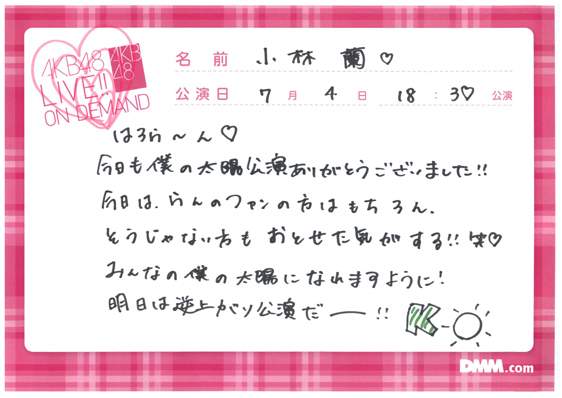 AKB48
LIVE!!
ON DEMAND
AKB
48
名前 小林 蘭♡
公演日 7月 4日 18:30 公演
はろら〜ん♡
今日も僕の太陽公演ありがとうございました!!
今日は、らんのファンの方はもちろん、
そうじゃない方も おとせた気がする!! 笑♡
みんなの僕の太陽になれますように!
明日は逆上がり公演だ——!!
K
DMM.com